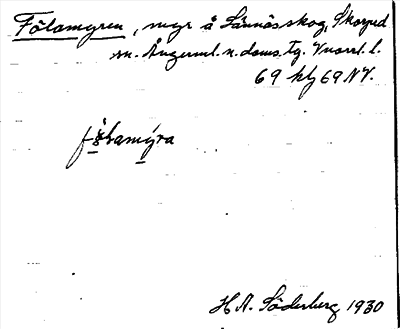 Fölamyren, myr å Sännäs skog, Skorped
sn. Ångerml. n. doms. Tg. Vnorrl. l.
69 kbl 69 NV.
Hj. Söderberg 1930